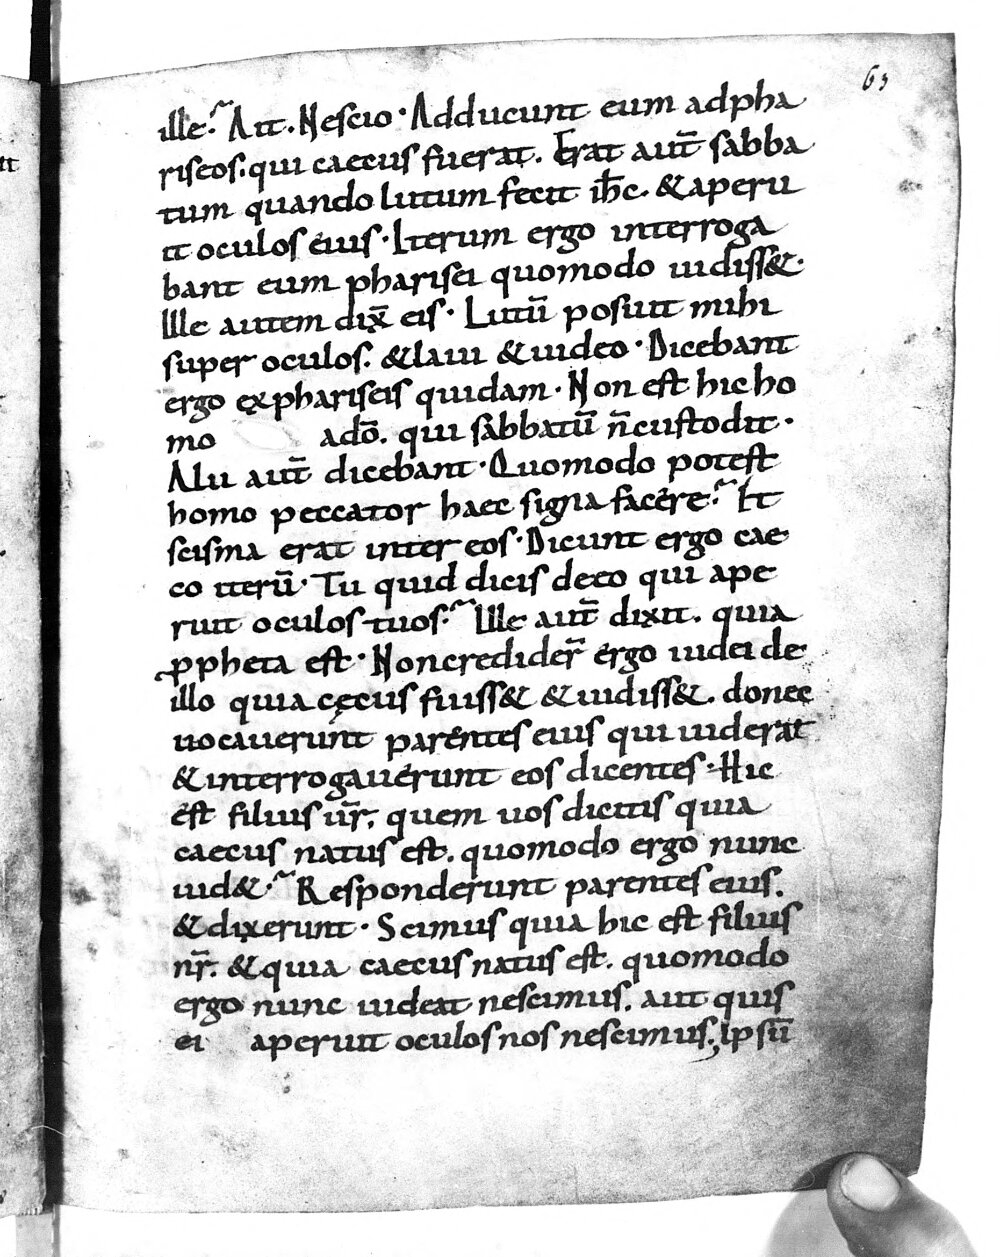 63
ille? Ait. Nescio. Adducunt eum adpha
riseos. qui caecus fuerat. Erat aut̄ sabba
tum quando lutum fecit ih̄c. & aperu
it oculos eius. Iterum ergo interroga
bant eum pharisei quomodo uidiss&.
Ille autem dix̄ eis. Lutū posuit mihi
super oculos. & laui & uideo. Dicebant
ergo ex phariseis quidam. Non est hic ho
mo adō. qui sabbatū n̄ custodit.
Alii aut̄ dicebant. Quomodo potest
homo peccator haec signa facere? Et
scisma erat inter eos. Dicunt ergo cae
co iterū. Tu quid dicis de eo qui ape
ruit oculos tuos? Ille aut̄ dixit. quia
ꝓpheta est. Non credider̄ ergo iudei de
illo quia cęcus fuiss& & uidiss&. donec
uocauerunt parentes eius qui uiderat
& interrogauerunt eos dicentes. Hic
est filius ūr. quem uos dicitis quia
caecus natus est. quomodo ergo nunc
uid&? Responderunt parentes eius.
& dixerunt. Scimus quia hic est filius
nr̄. & quia caecus natus est. quomodo
ergo nunc uideat nescimus. aut quis
ei aperuit oculos nos nescimus. Ipsū